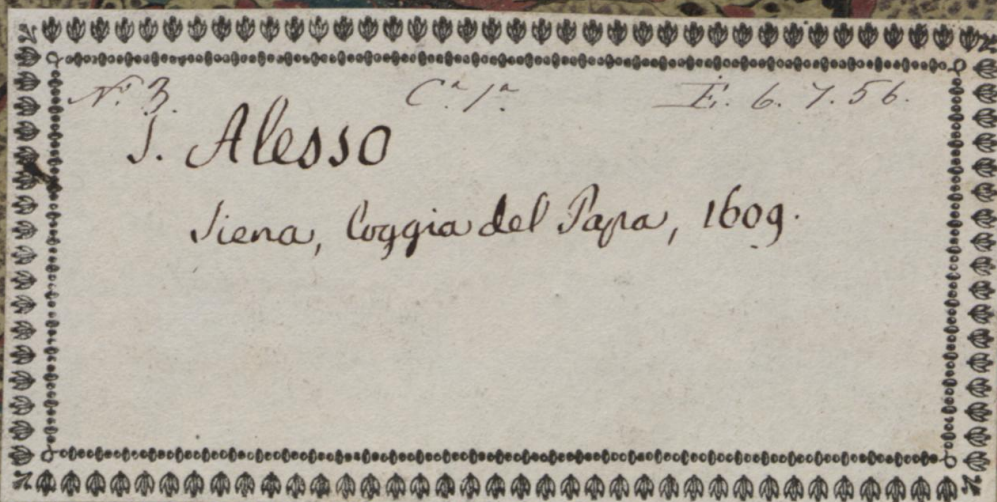 N.º 3. C.ª 1.ª E. 6. 7. 56.
S. Alesso
Siena, Loggia del Papa, 1609.